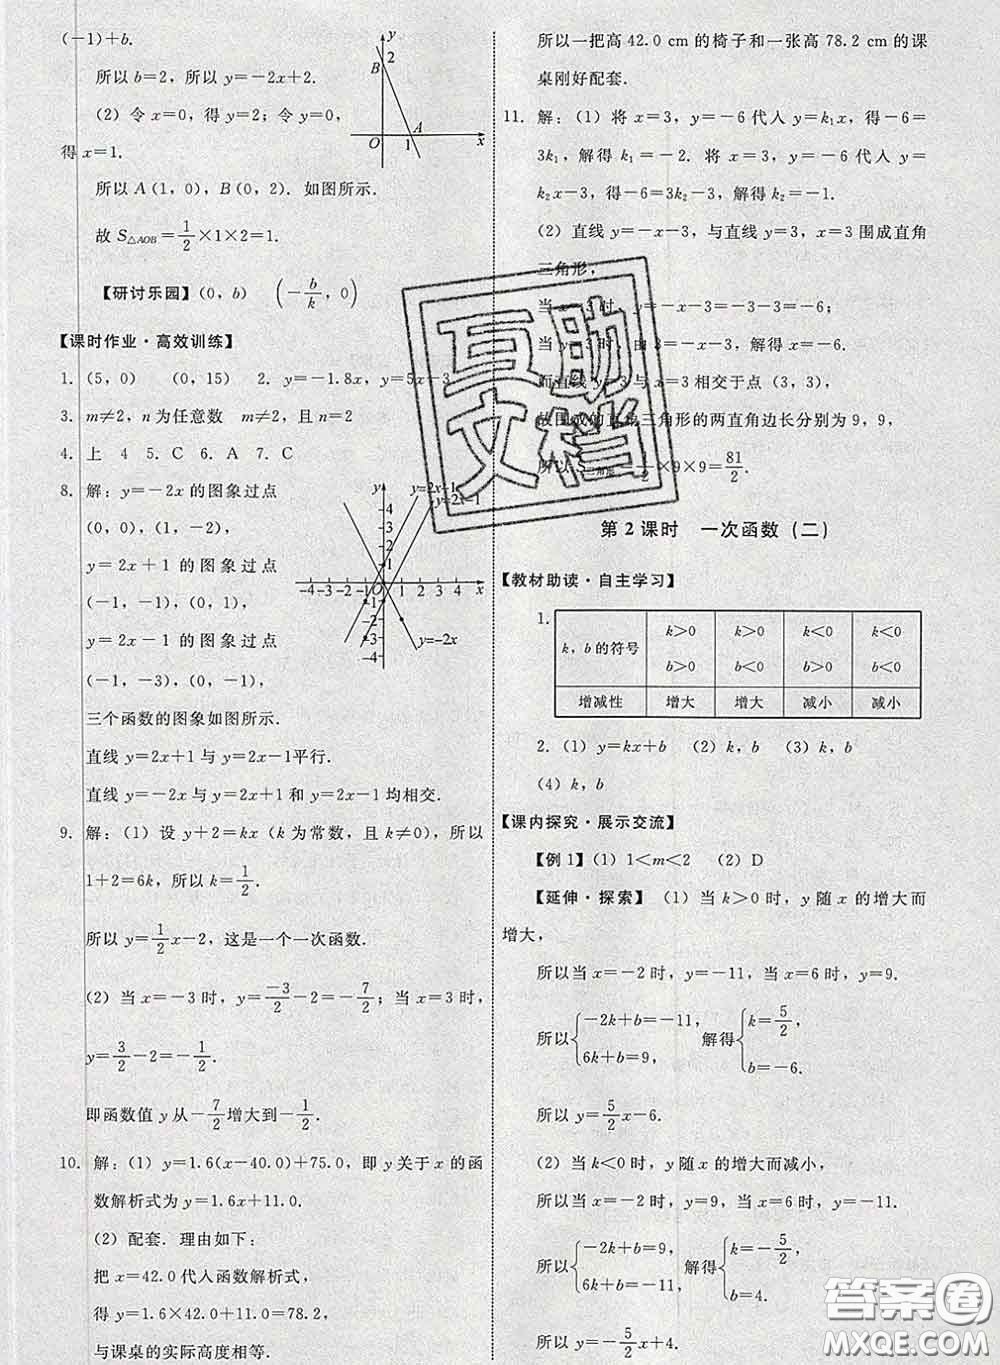 (-1)+b.
所以 b=2, 所以 y=-2x+2.
(2) 令 x=0, 得 y=2; 令 y=0,
得 x=1.
所以 A(1, 0), B(0, 2). 如图所示.
故 S△AOB=1/2×1×2=1.
y
2
B
O
1
A
x
【研讨乐园】(0, b) (-b/k, 0)
【课时作业·高效训练】
1. (5, 0) (0, 15) 2. y=-1.8x, y=5x-3
3. m≠2, n 为任意数 m≠2, 且 n=2
4. 上 4 5. C 6. A 7. C
8. 解: y=-2x 的图象过点
(0, 0), (1, -2),
y=2x+1 的图象过点
(-1, -1), (0, 1),
y=2x-1 的图象过点
(-1, -3), (0, -1),
三个函数的图象如图所示.
直线 y=2x+1 与 y=2x-1平行.
直线 y=-2x 与 y=2x+1 和 y=2x-1 均相交.
y
y=2x-1
4
3
2
1
-4 -3 -2 -1 O 1 2 3 4 x
-1
-2
-3
-4
y=-2x
9. 解: (1) 设 y+2=kx (k 为常数, 且 k≠0), 所以
1+2=6k, 所以 k=1/2.
所以 y=1/2x-2, 这是一个一次函数.
(2) 当 x=-3 时, y=-3/2-2=-7/2; 当 x=3 时,
y=3/2-2=-1/2.
即函数值 y 从-7/2增大到-1/2.
10. 解: (1) y=1.6(x-40.0)+75.0, 即 y 关于 x 的函
数解析式为 y=1.6x+11.0.
(2) 配套. 理由如下:
把 x=42.0 代入函数解析式,
得 y=1.6×42.0+11.0=78.2,
与课桌的实际高度相等.
所以一把高 42.0 cm 的椅子和一张高 78.2 cm 的课
桌刚好配套.
11. 解: (1) 将 x=3, y=-6 代入 y=k₁x, 得-6=
3k₁, 解得 k₁=-2. 将 x=3, y=-6 代入 y=
k₂x-3, 得-6=3k₂-3, 解得 k₂=-1.
(2) 直线 y=-x-3, 与直线 y=3, x=3 围成直角
三角形,
当 x=3 时, y=-x-3=-3-3=-6;
当 y=3 时, 由 3=-x-3, 解得 x=-6.
而直线 y=3 与 x=3 相交于点 (3, 3),
故围成的直角三角形的两直角边长分别为 9, 9,
所以 S三角形=1/2×9×9=81/2.
第 2 课时 一次函数 (二)
【教材助读·自主学习】
1.
k, b 的符号 k>0 b>0 k>0 b<0 k<0 b>0 k<0 b<0
增减性 增大 增大 减小 减小
2. (1) y=kx+b (2) k, b (3) k, b
(4) k, b
【课内探究·展示交流】
【例 1】(1) 1<m<2 (2) D
【延伸·探索】(1) 当 k>0 时, y 随 x 的增大而
增大,
所以当 x=-2 时, y=-11, 当 x=6 时, y=9.
所以{-2k+b=-11, 6k+b=9, 解得{k=5/2, b=-6.
所以 y=5/2x-6.
(2) 当 k<0 时, y随 x 的增大而减小,
所以当 x=-2 时, y=9, 当 x=6 时, y=-11.
所以{-2k+b=9, 6k+b=-11, 解得{k=-5/2, b=4.
所以 y=-5/2x+4.
互助
文档
答案圈
MXQE.COM